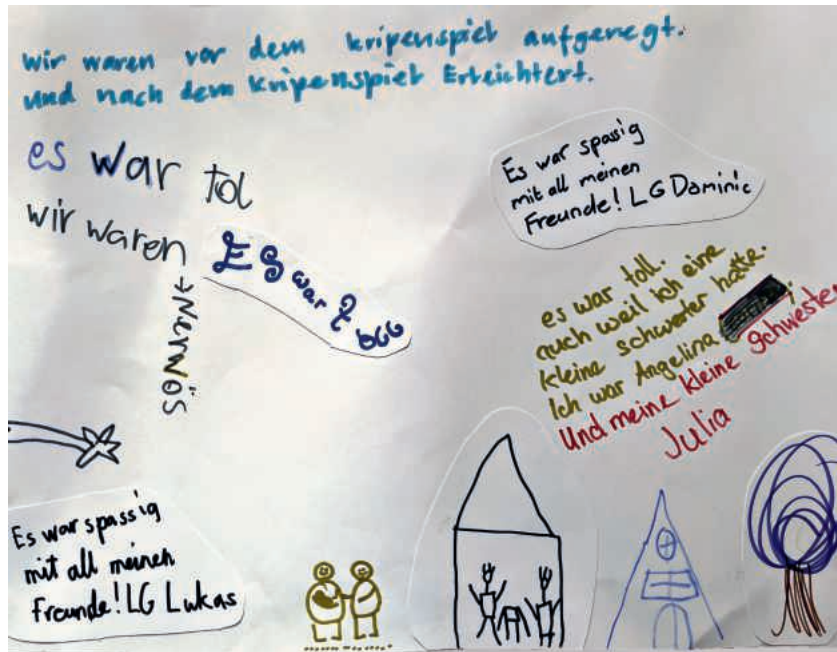 wir waren vor dem kripenspiel aufgeregt.
und nach dem kripenspiel Erleichtert.
es war tol
wir waren
→Nervös
ES war toll
Es war spassig
mit all meinen
Freunde! LG Dominic
es war toll.
auch weil ich eine
kleine schwester hatte.
Ich war Angelina
Und meine kleine schwester
Julia
Es war spassig
mit all meinen
Freunde! LG Lukas